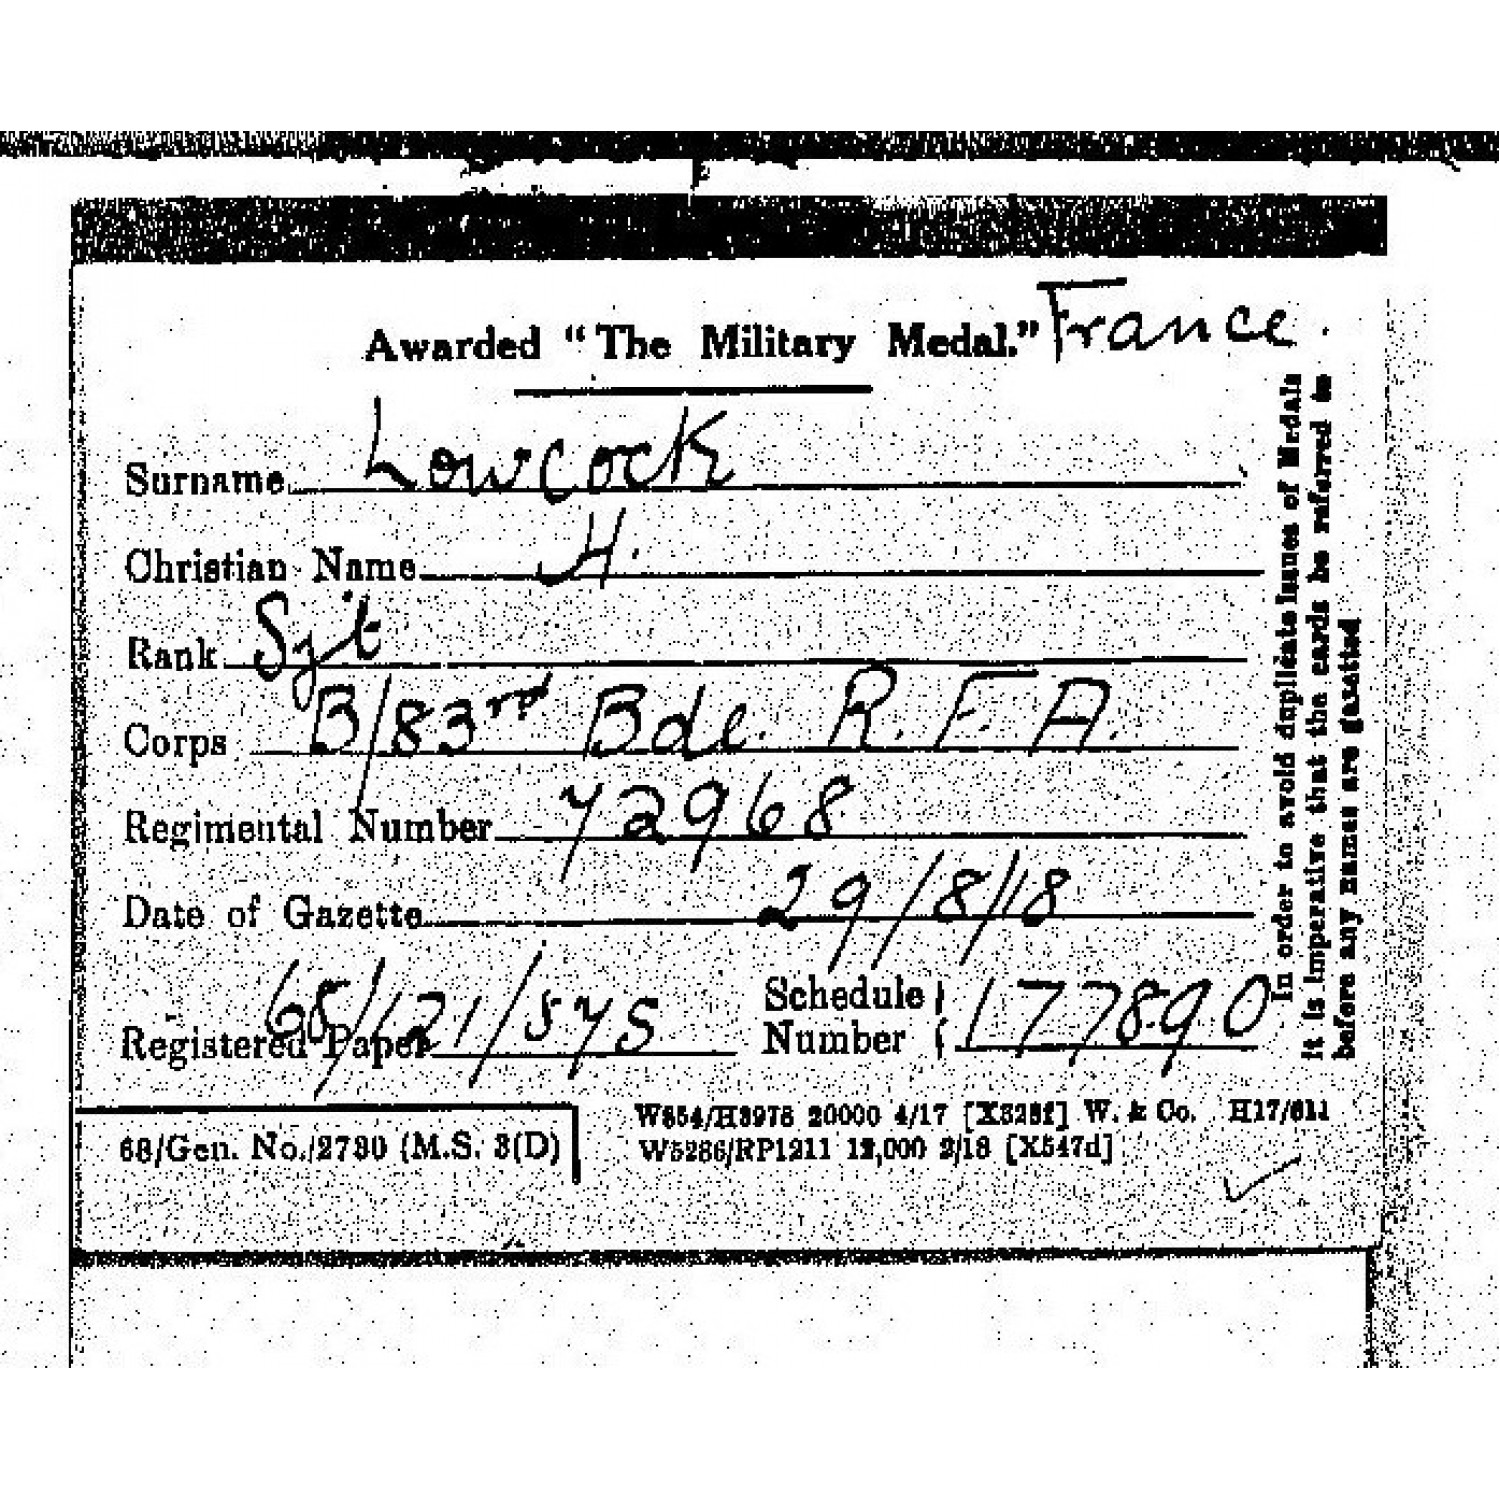 Awarded "The Military Medal." France.
Surname Lowcock
Christian Name H.
Rank Sjt
Corps B/83rd Bde. R.F.A.
Regimental Number 72968
Date of Gazette 29/8/18
Registered Paper 68/121/575
Schedule Number 177890
68/Gen. No./2730 (M.S. 3(D)
W854/H3976 20000 4/17 [X328f] W. & Co. H17/611
W5286/RP1211 12,000 2/18 [X547d]
In order to avoid duplicate issues of Medals
it is imperative that the cards be referred to
before any names are gazetted